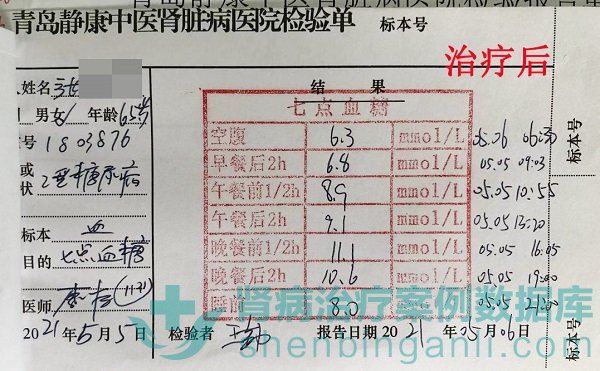 青岛静康中医肾脏病医院检验单 标本号
治疗后
姓名
男女 年龄65岁
号 1803876
或
状 2型糖尿病
标本 血
目的 七点血糖
医师
2021年5月5日
结 果
七点血糖
空腹 6.3 mmol/L 05.06
早餐后2h 6.8 mmol/L 05.05 09:03
午餐前1/2h 8.9 mmol/L 05.05 10:55
午餐后2h 9.1 mmol/L 05.05 13:20
晚餐前1/2h 11.1 mmol/L 05.05 16:05
晚餐后2h 10.6 mmol/L 05.05 19:00
睡前 8.0 05.05 21:30
检验者 报告日期 2021年05月06日
标本号
标本号
肾病治疗案例数据库
shenbinganli.com